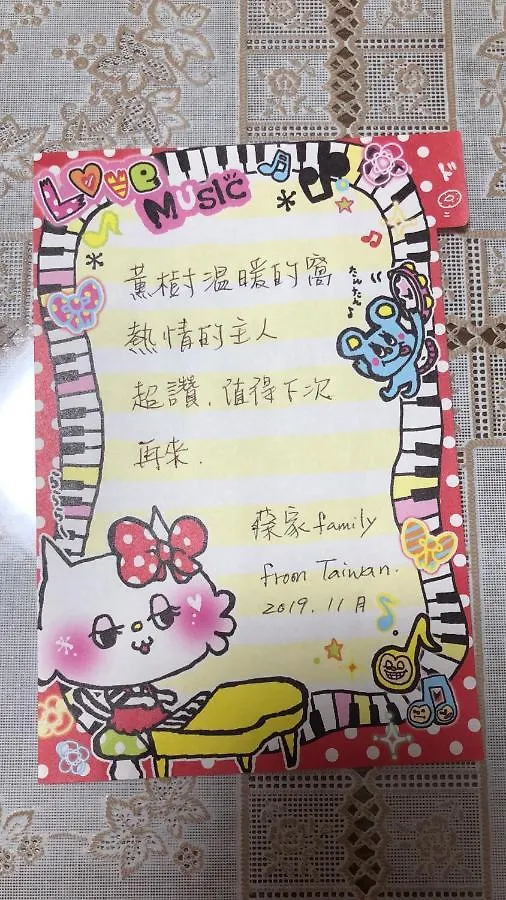 Love
Music
ド
薫樹温暖的窩
たんたん♪
熱情的主人
超讚，值得下次
再來.
蔡家 family
from Taiwan.
2019.11月